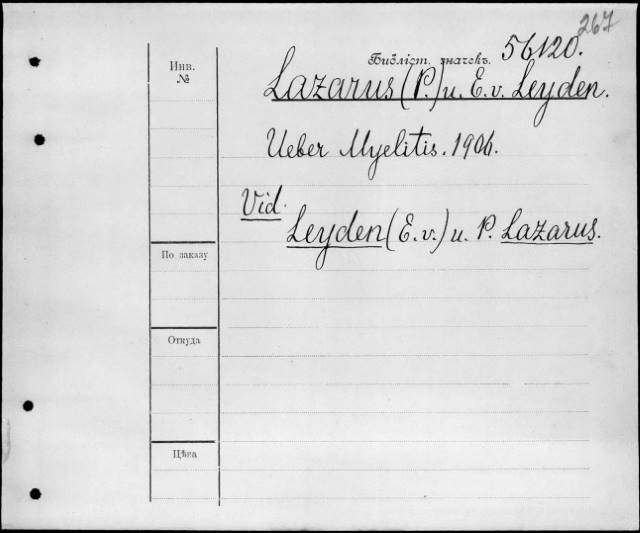 267
Библіот. значекъ. 56120.
Инв.
№
Lazarus (P.) u. E. v. Leyden.
Ueber Myelitis. 1906.
Vid.
Leyden (E. v.) u. P. Lazarus.
По заказу
Откуда
Цѣна